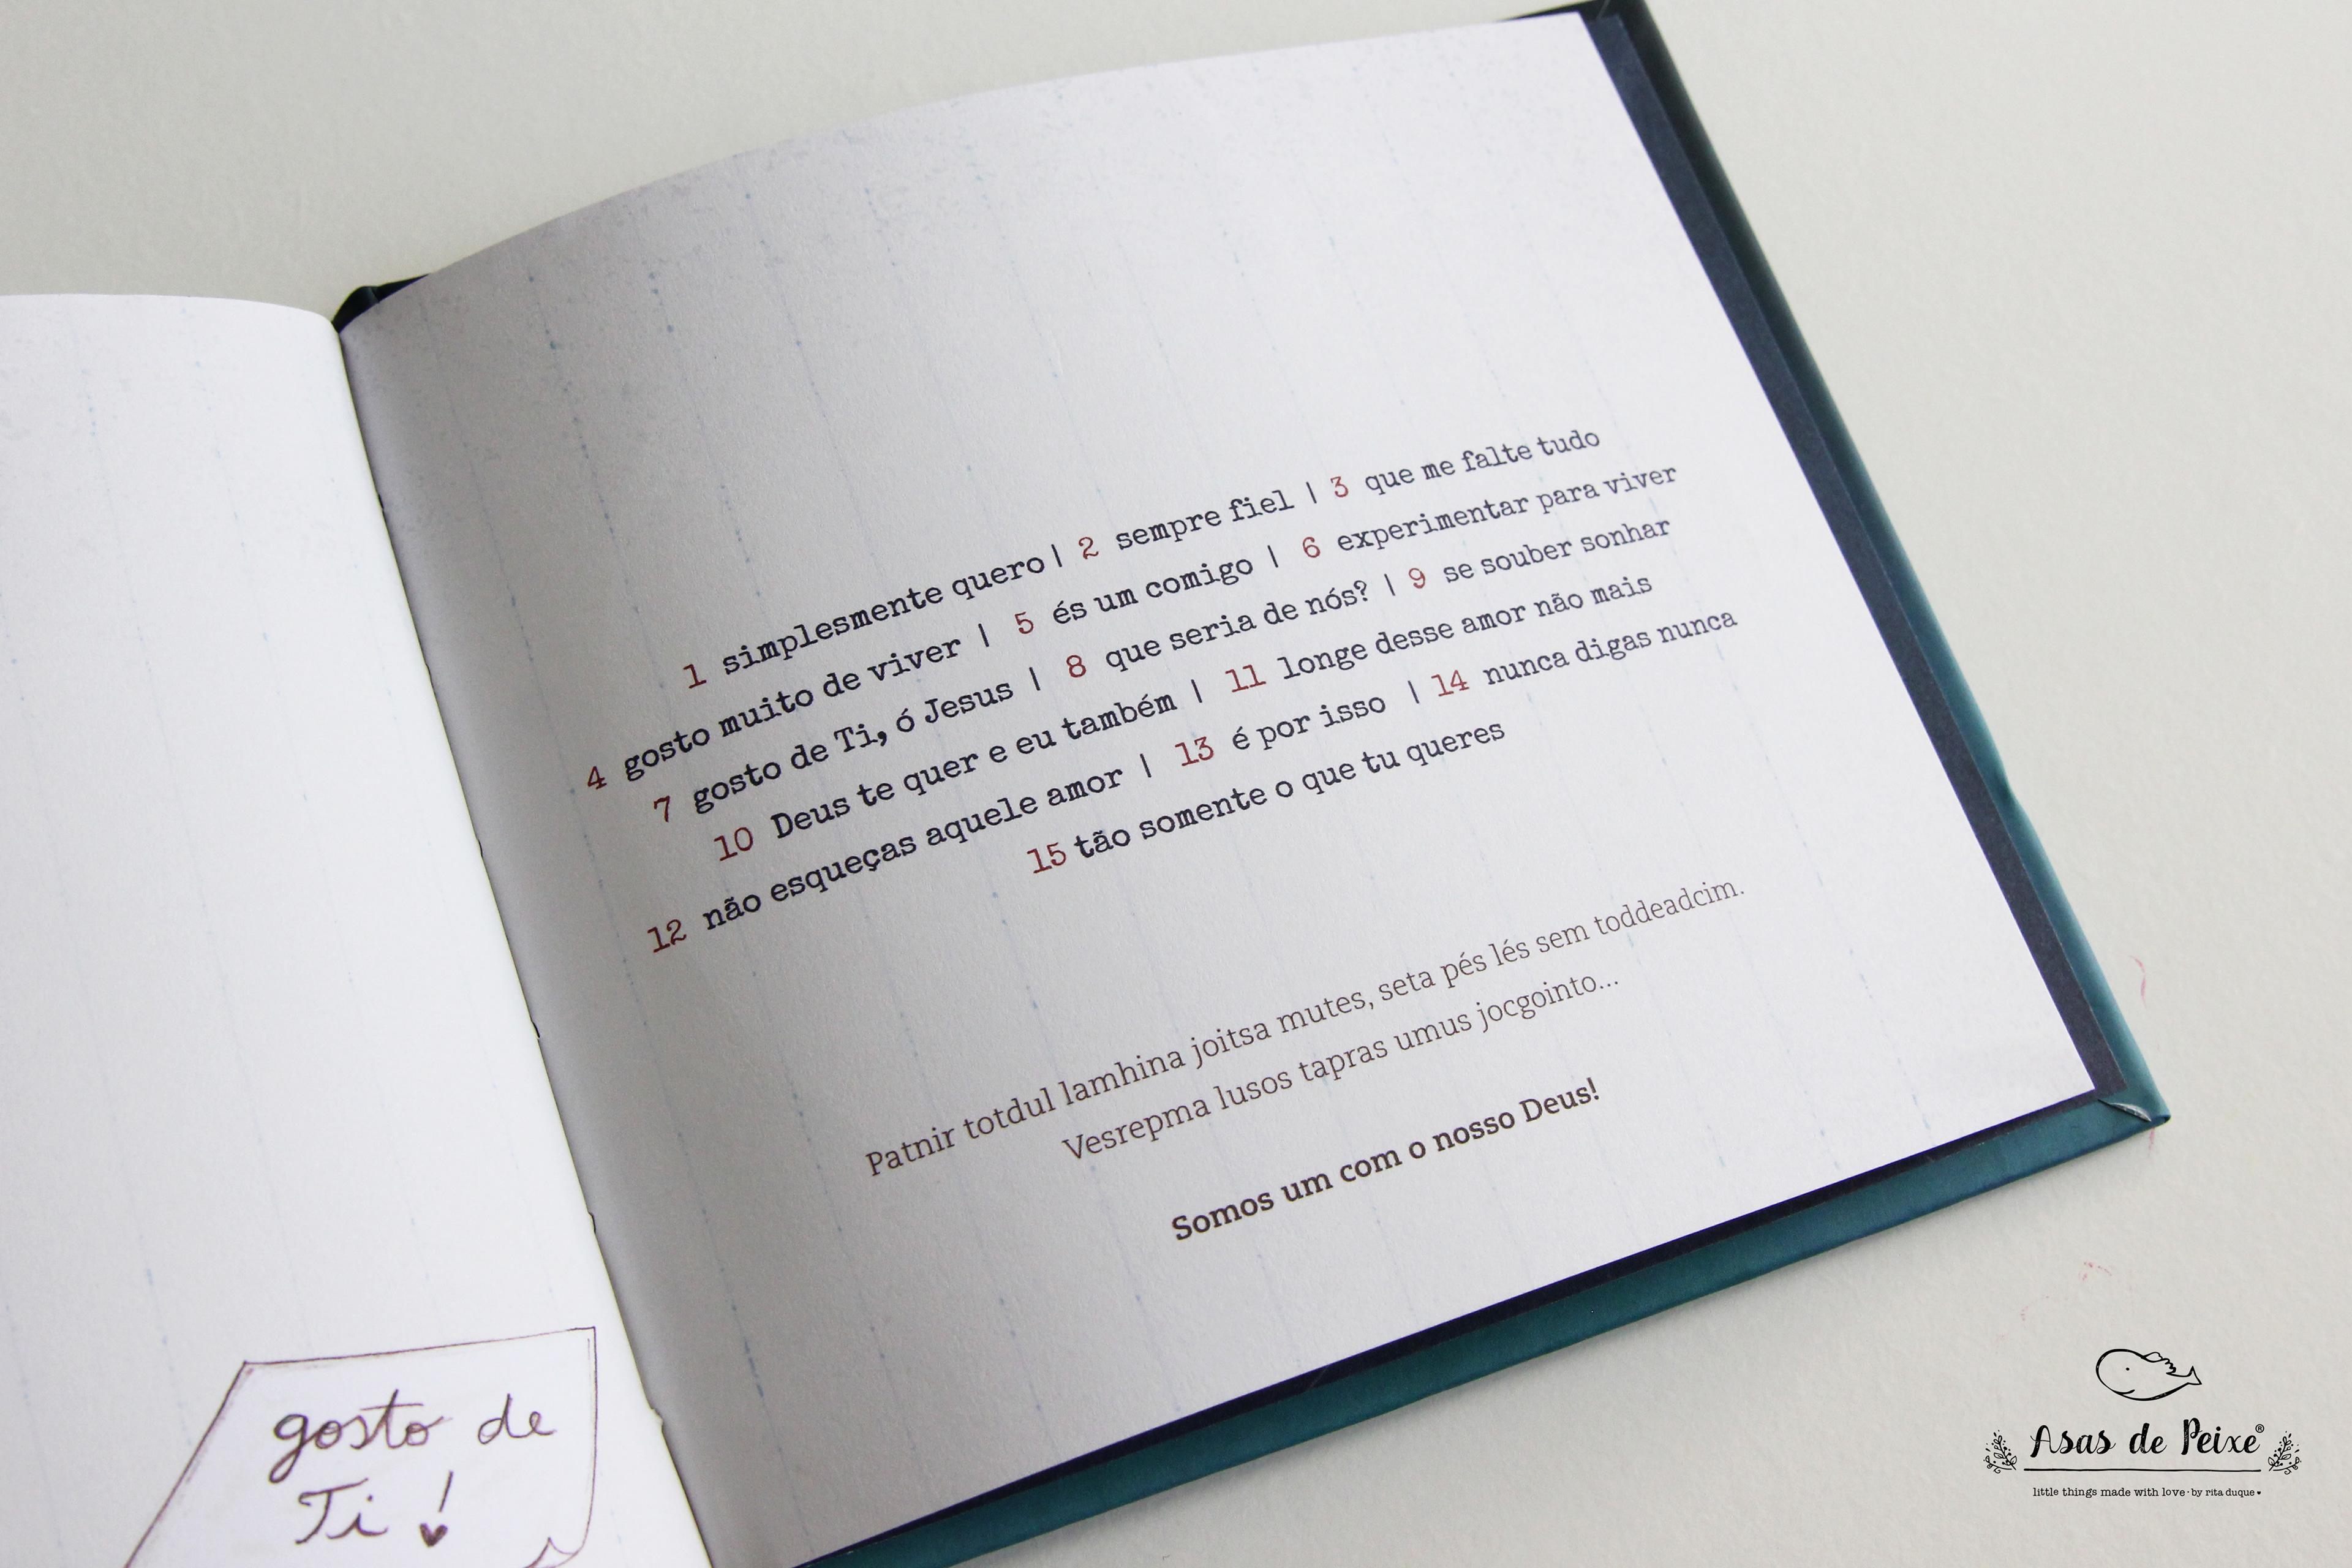 gosto de
Ti !
1 simplesmente quero | 2 sempre fiel | 3 que me falte tudo
4 gosto muito de viver | 5 és um comigo | 6 experimentar para viver
7 gosto de Ti, ó Jesus | 8 que seria de nós? | 9 se souber sonhar
10 Deus te quer e eu também | 11 longe desse amor não mais
12 não esqueças aquele amor | 13 é por isso | 14 nunca digas nunca
15 tão somente o que tu queres
Patnir totdul lamhina joitsa mutes, seta pés lés sem toddeadcim.
Vesrepma lusos tapras umus jocgointo...
Somos um com o nosso Deus!
Asas de Peixe®
little things made with love · by rita duque ♥